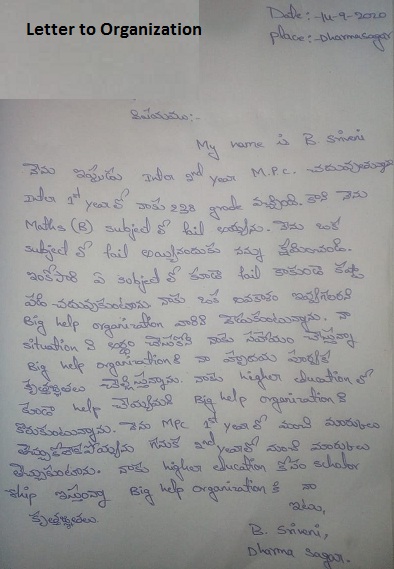 Letter to Organization
Date:- 14-9-2020
place:- Dharmasagar
విషయము:-
My name is B. Sriveni
నేను ఇప్పుడు Inter 2nd year M.P.C. చదువుతున్నాను
Inter 1st year లో నాకు 228 grade వచ్చింది. కానీ నేను
Maths (B) subject లో fail అయ్యాను. నేను ఒక
subject లో fail అయ్యినందుకు నన్ను క్షమించండి.
ఇంకోసారి ఏ subject లో కూడా fail కాకుండా కష్ట
పడి చదువుకుంటాను. నాకు ఒక అవకాశం ఇవ్వగలరని
Big help organization వారిని వేడుకుంటున్నాను. నా
situation ని అర్థం చేసుకొని నాకు సహాయం చేస్తున్నా
Big help organization కి నా హృదయ పూర్వక
కృతజ్ఞతలు తెలుపుతున్నాను. నాకు higher education లో
కూడా help చెయ్యమని Big help organization ని
కోరుకుంటున్నాను. నేను MPC 1st year లో మంచి మార్కులు
తెచ్చుకోలేకపోయ్యాను గనుక 2nd year లో మంచి మార్కులు
తెచ్చుకుంటాను. నాకు higher education కోసం scholar
ship ఇస్తున్నా Big help organization కి నా
కృతజ్ఞతలు
ఇట్లు,
B. Sriveni,
Dharma sagar.